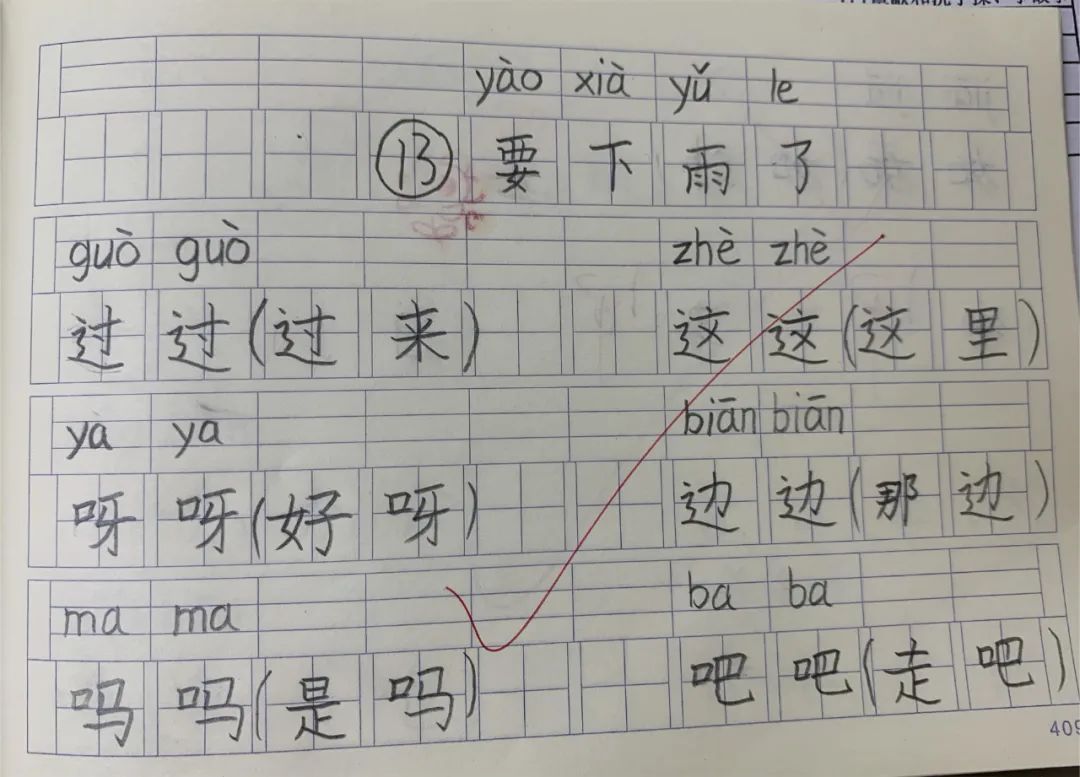 yào xià yǔ le
⑬ 要下雨了
guò guò zhè zhè
过过(过来) 这这(这里)
ya yà biān biān
呀呀(好呀) 边边(那边)
ma ma ba ba
吗吗(是吗) 吧吧(走吧)
409